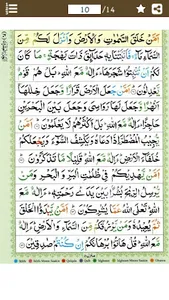 10 /14
اَمَّنْ خَلَقَ السَّمٰوٰتِ وَالْاَرْضَ وَاَنْزَلَ لَكُمْ
مِّنَ السَّمَآءِ مَآءً ۚ فَاَنْۢبَتْنَا بِهٖ حَدَآئِقَ ذَاتَ بَهْجَةٍ ۚ مَا كَانَ
لَكُمْ اَنْ تُنْۢبِتُوْا شَجَرَهَا ؕ ءَاِلٰهٌ مَّعَ اللّٰهِ ؕ بَلْ هُمْ قَوْمٌ
يَّعْدِلُوْنَ اَمَّنْ جَعَلَ الْاَرْضَ قَرَارًا وَّجَعَلَ خِلٰلَهَاۤ
اَنْهٰرًا وَّجَعَلَ لَهَا رَوَاسِيَ وَجَعَلَ بَيْنَ الْبَحْرَيْنِ
حَاجِزًا ؕ ءَاِلٰهٌ مَّعَ اللّٰهِ ؕ بَلْ اَكْثَرُهُمْ لَا يَعْلَمُوْنَ اَمَّنْ
يُّجِيْبُ الْمُضْطَرَّ اِذَا دَعَاهُ وَيَكْشِفُ السُّوْٓءَ وَيَجْعَلُكُمْ
خُلَفَآءَ الْاَرْضِ ؕ ءَاِلٰهٌ مَّعَ اللّٰهِ ؕ قَلِيْلًا مَّا تَذَكَّرُوْنَ
اَمَّنْ يَّهْدِيْكُمْ فِيْ ظُلُمٰتِ الْبَرِّ وَالْبَحْرِ وَمَنْ
يُّرْسِلُ الرِّيٰحَ بُشْرًاۢ بَيْنَ يَدَيْ رَحْمَتِهٖ ؕ ءَاِلٰهٌ مَّعَ اللّٰهِ ؕ
تَعٰلَى اللّٰهُ عَمَّا يُشْرِكُوْنَ اَمَّنْ يَّبْدَؤُا الْخَلْقَ
ثُمَّ يُعِيْدُهٗ وَمَنْ يَّرْزُقُكُمْ مِّنَ السَّمَآءِ وَالْاَرْضِ ؕ
ءَاِلٰهٌ مَّعَ اللّٰهِ ؕ قُلْ هَاتُوْا بُرْهَانَكُمْ اِنْ كُنْتُمْ صٰدِقِيْنَ